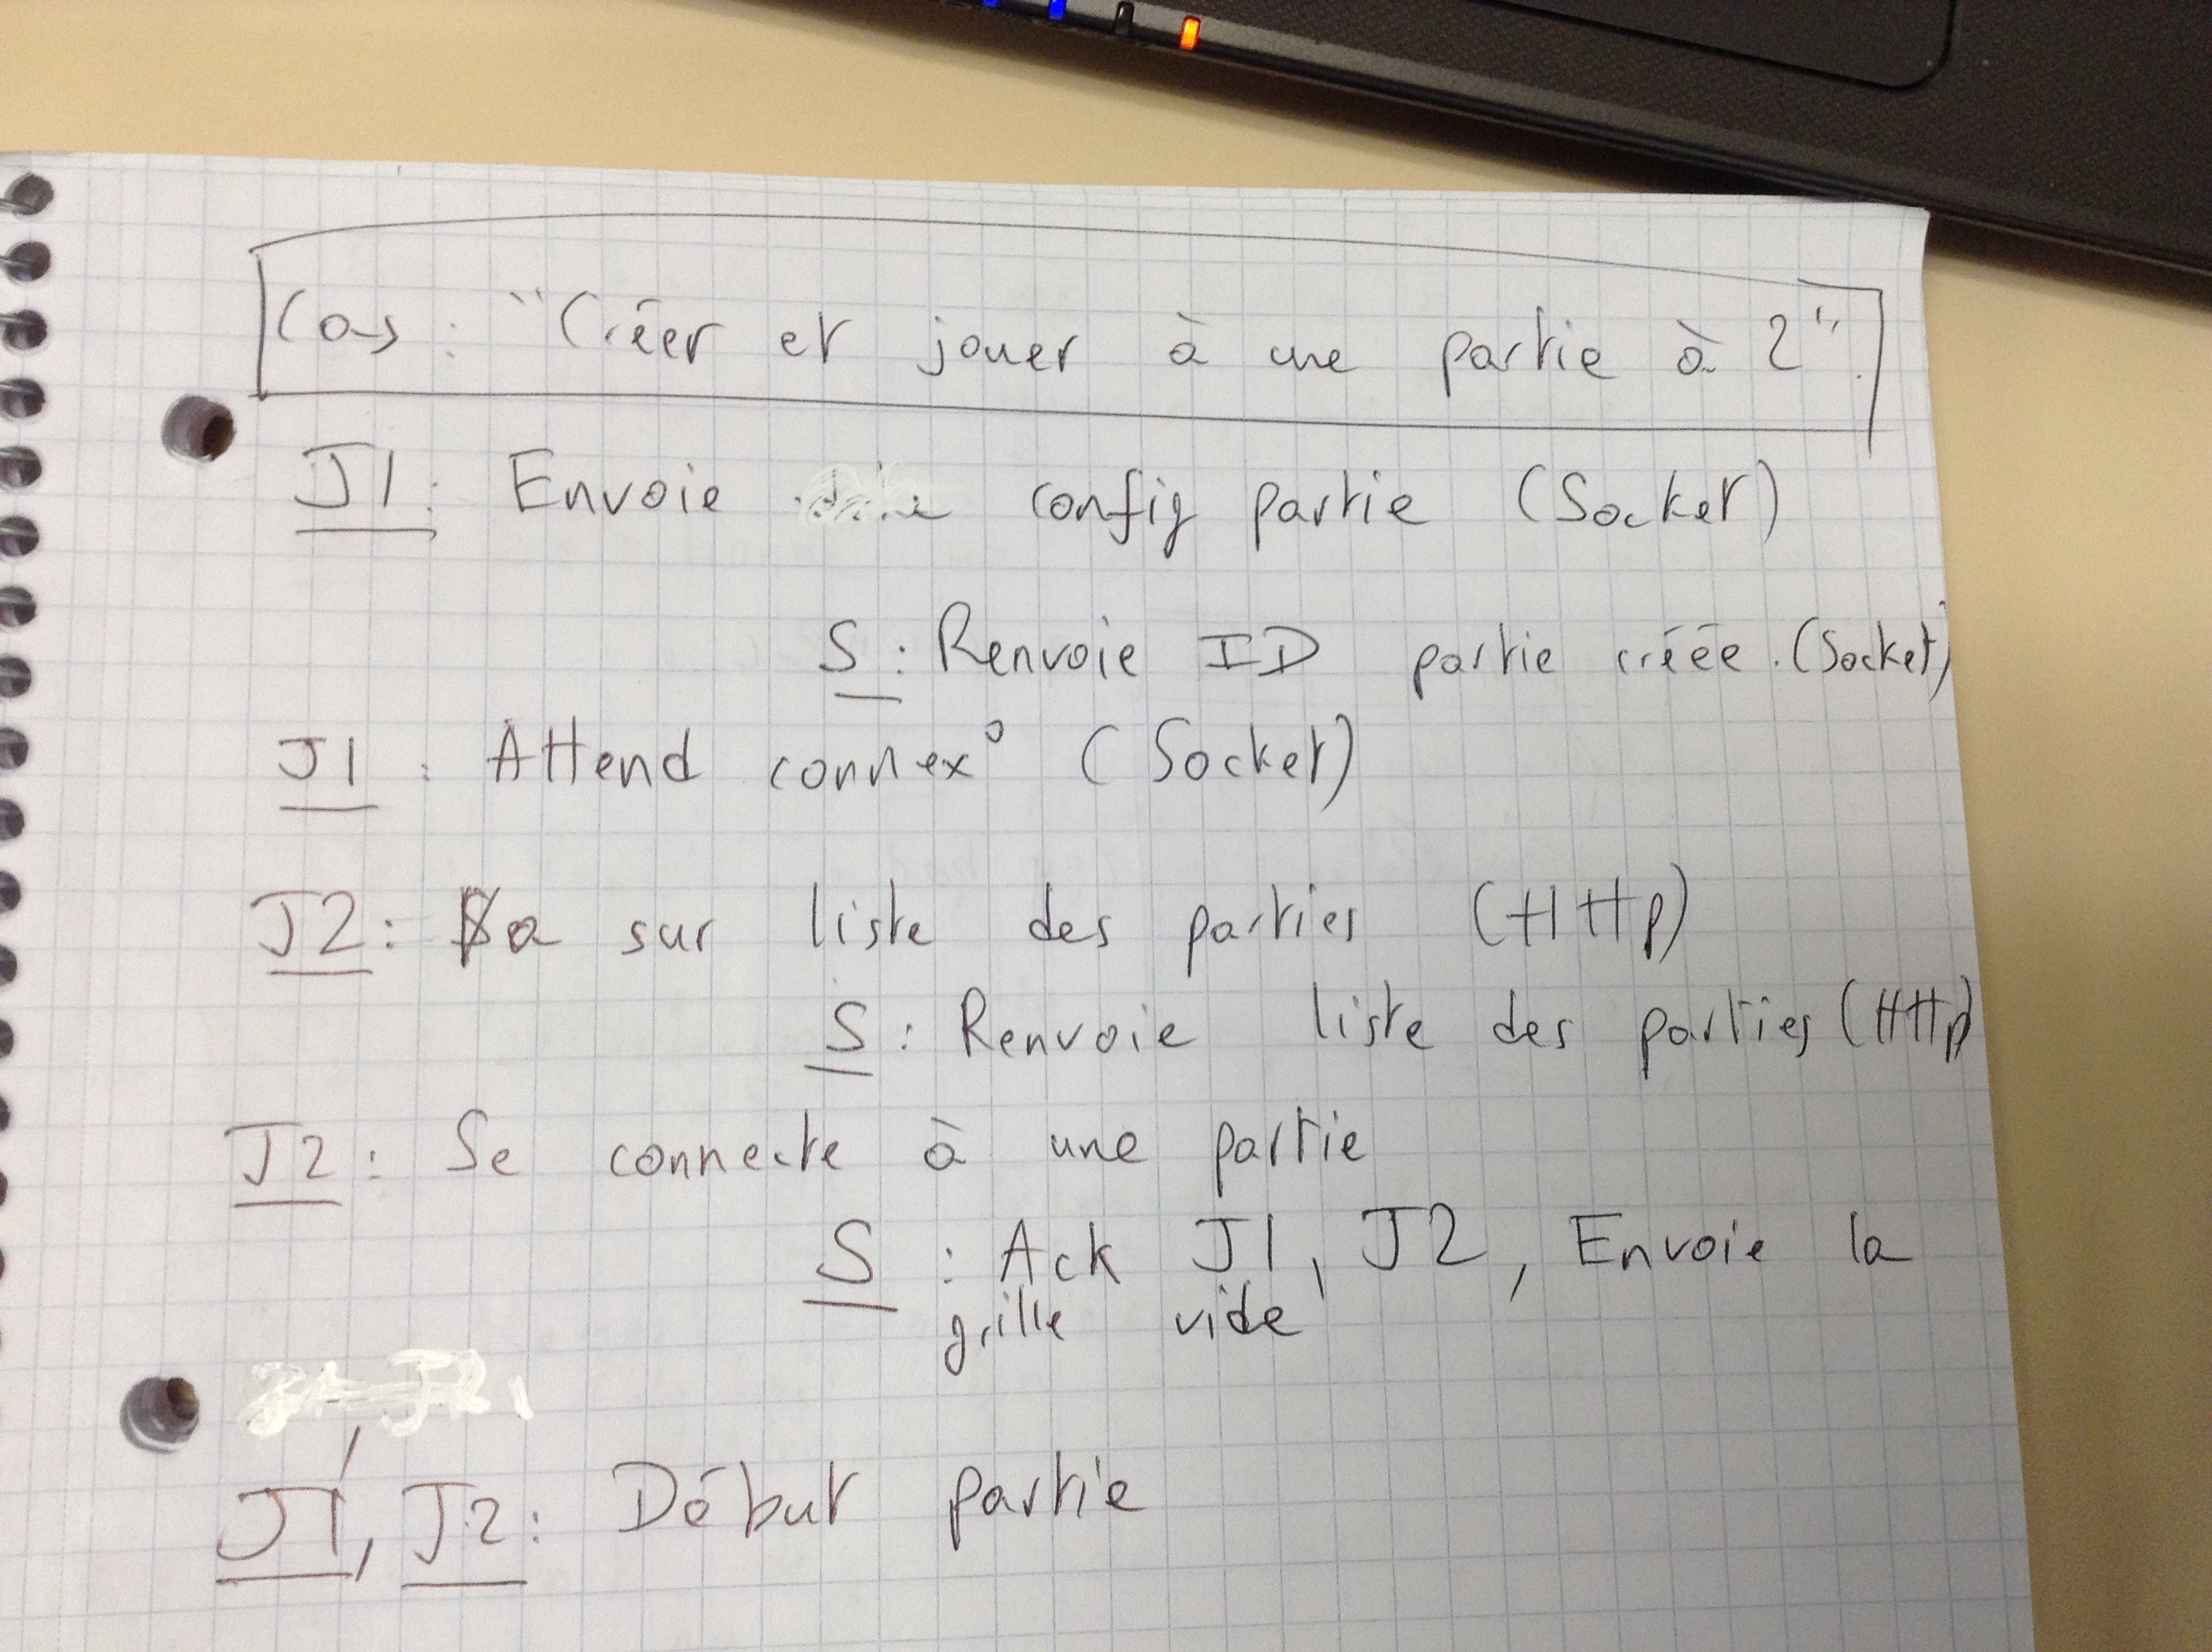 Cas : "Créer et jouer à une partie à 2".
J1 : Envoie config partie (Socket)
S : Renvoie ID partie créée. (Socket)
J1 : Attend connex° (Socket)
J2 : Va sur liste des parties (HTTP)
S : Renvoie liste des parties (HTTP)
J2 : Se connecte à une partie
S : Ack J1, J2, Envoie la
grille vide
J1, J2 : Début partie